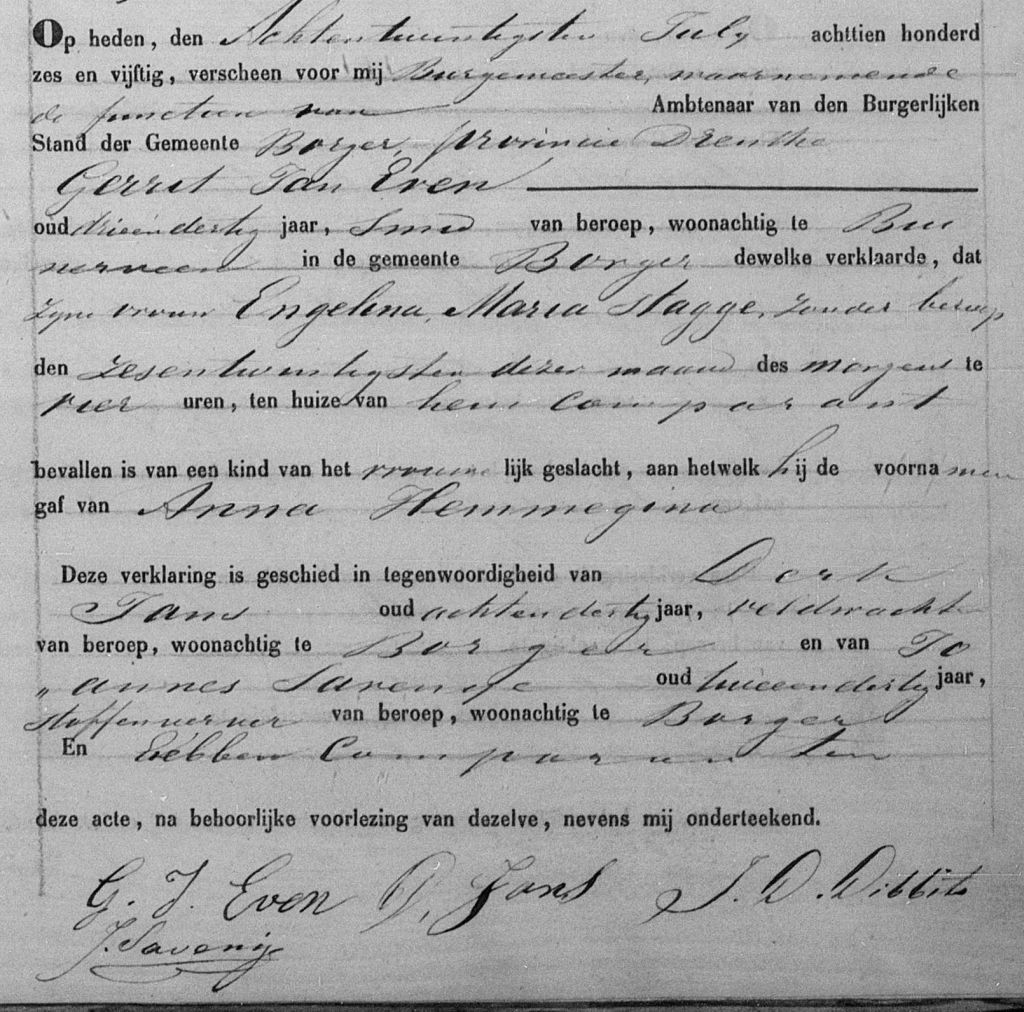 Op heden, den Achtentwintigsten July achttien honderd
zes en vijftig, verscheen voor mij Burgemeester, waarnemende
de functien van Ambtenaar van den Burgerlijken
Stand der Gemeente Borger, provincie Drenthe
Gerrit Jan Even
oud drieendertig jaar, Smid van beroep, woonachtig te Bui
nerveen in de gemeente Borger dewelke verklaarde, dat
zyne vrouw Engelina Maria Stagge, zonder beroep
den zesentwintigsten dezer maand des morgens te
vier uren, ten huize van hem Comparant
bevallen is van een kind van het vrouwe lijk geslacht, aan hetwelk hij de voorna men
gaf van Anna Hemmegina
Deze verklaring is geschied in tegenwoordigheid van Derk
Jans oud achtendertig jaar, veldwachter
van beroep, woonachtig te Borger en van Jo
„ annes Savenije oud tweeendertig jaar,
stoffenverver van beroep, woonachtig te Borger
En hebben Comparanten
deze acte, na behoorlijke voorlezing van dezelve, nevens mij onderteekend.
G. J. Even D. Jans J. D. Dibbits
J. Savenij